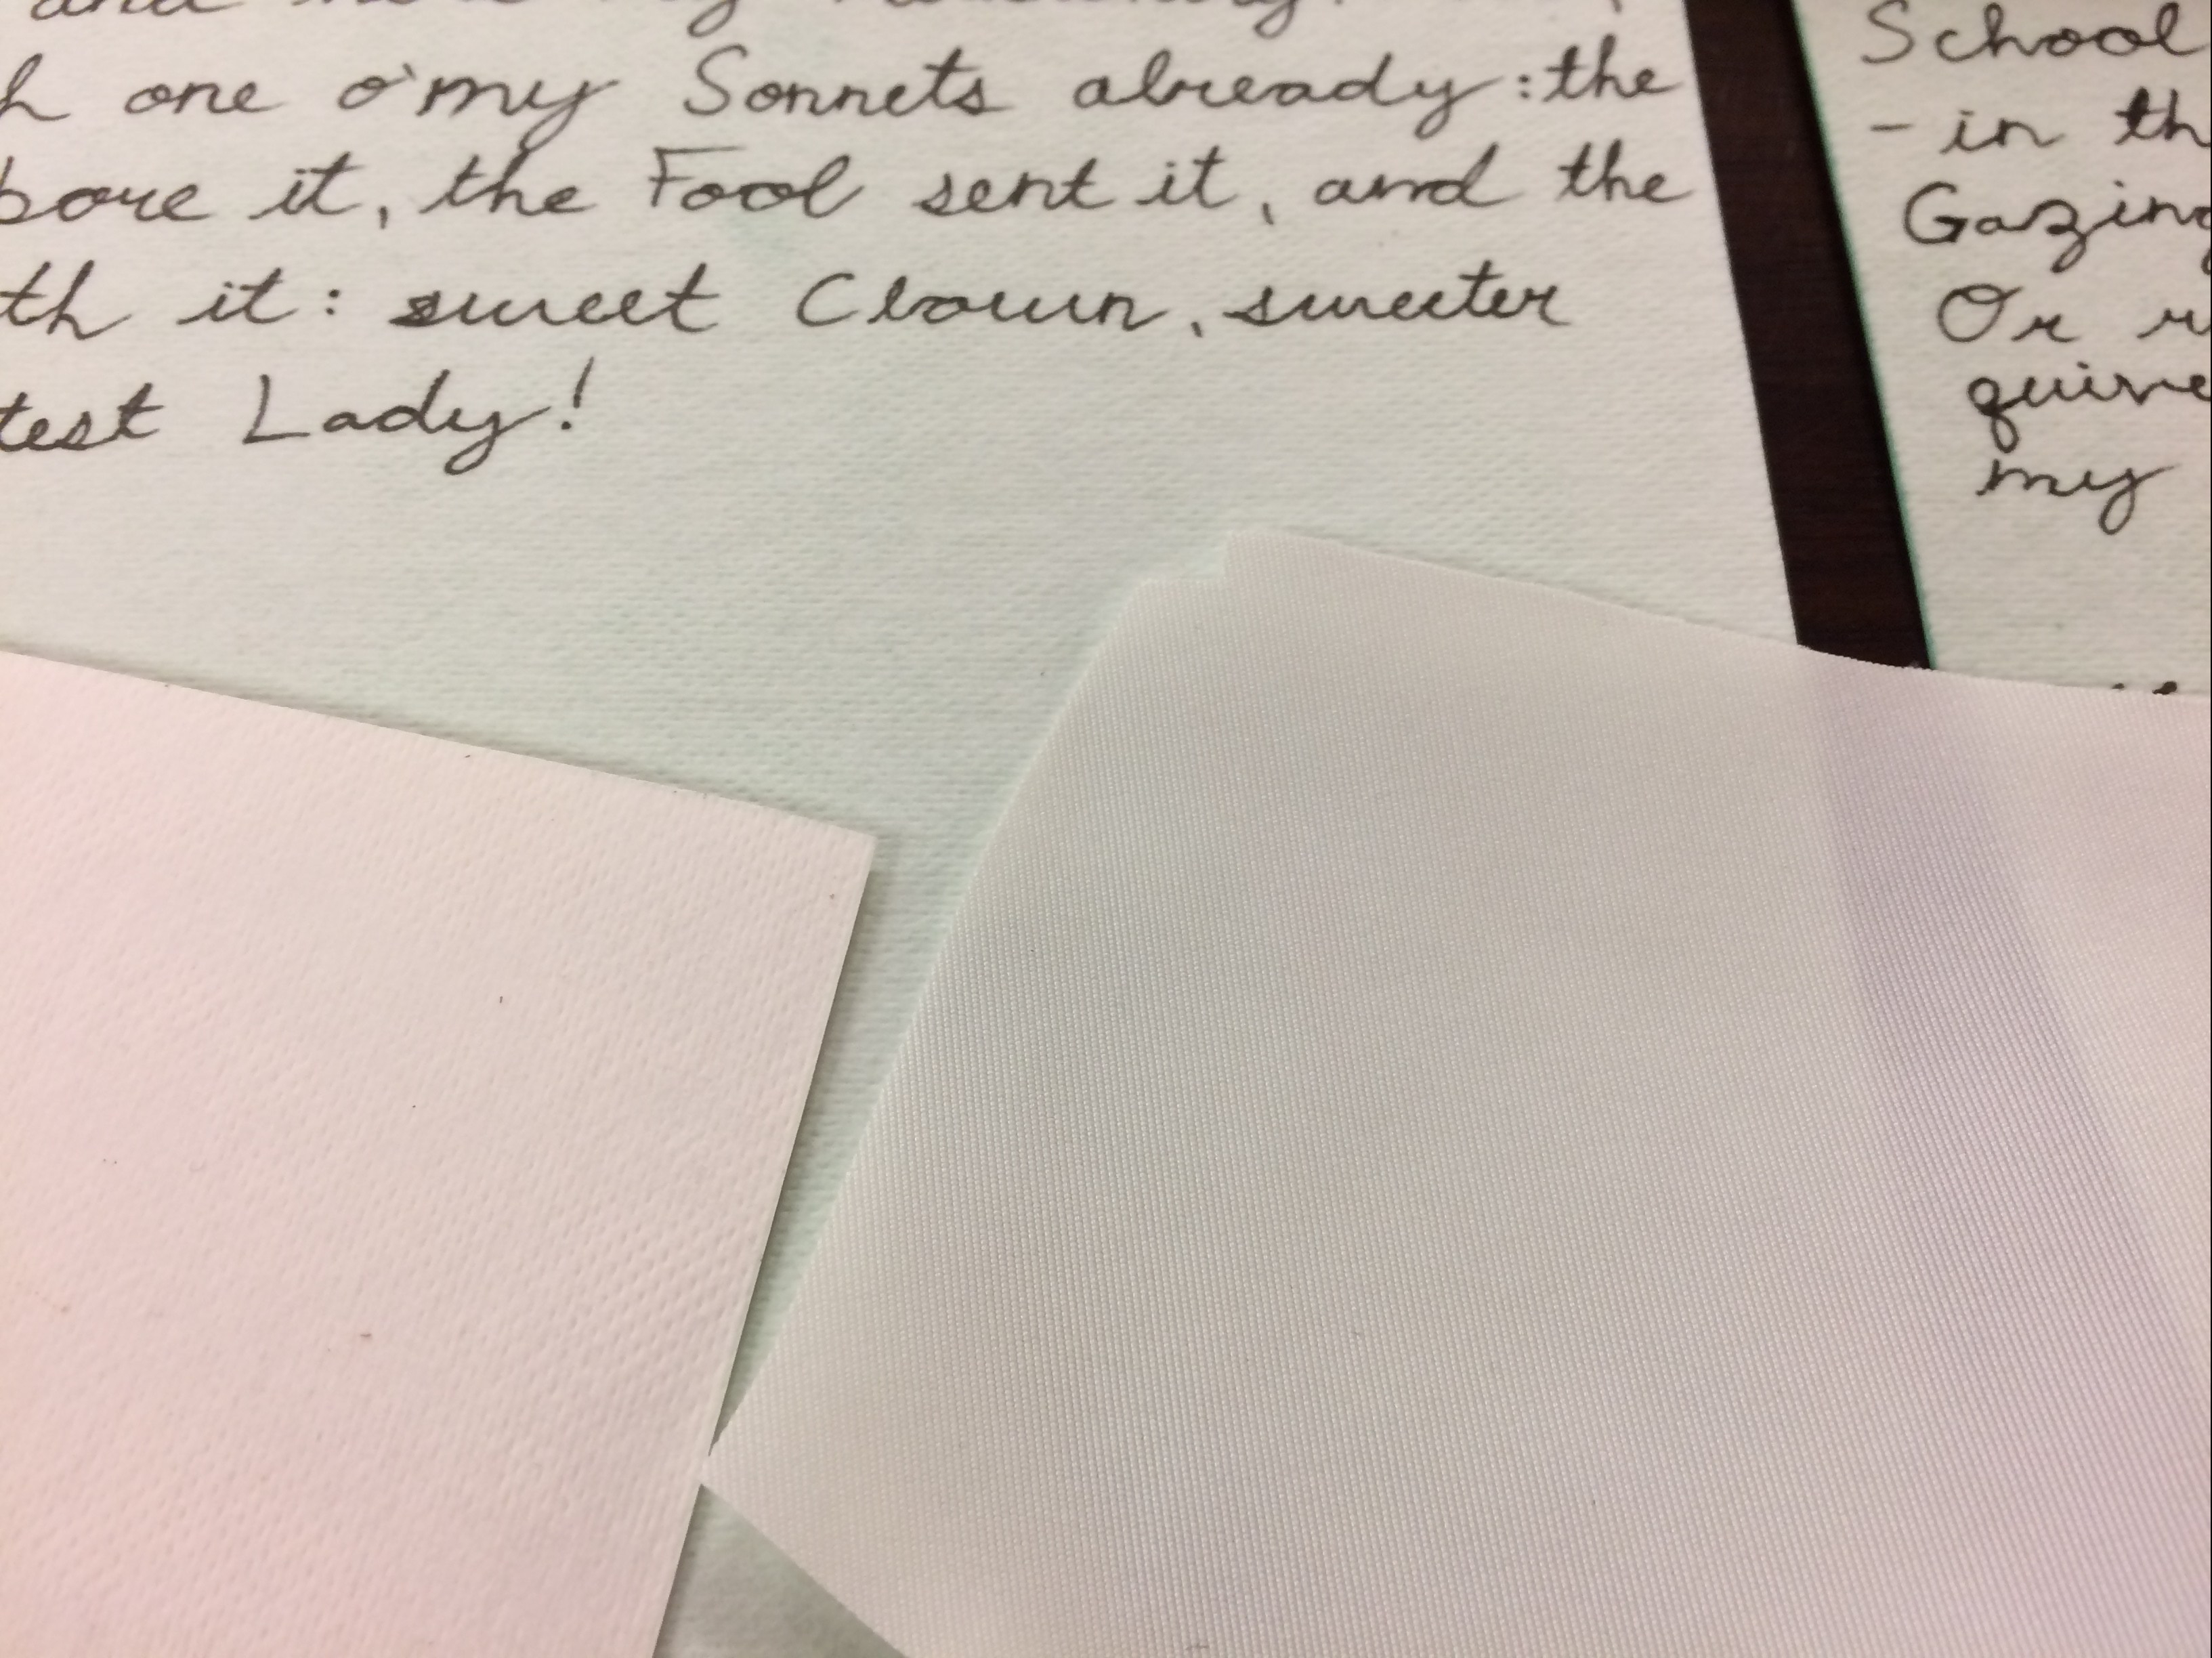 and
h one o'my Sonnets already: the
bore it, the Fool sent it, and the
th it: sweet Clown, sweeter
test Lady!
School
- in th
Gazing
Or
quive
my